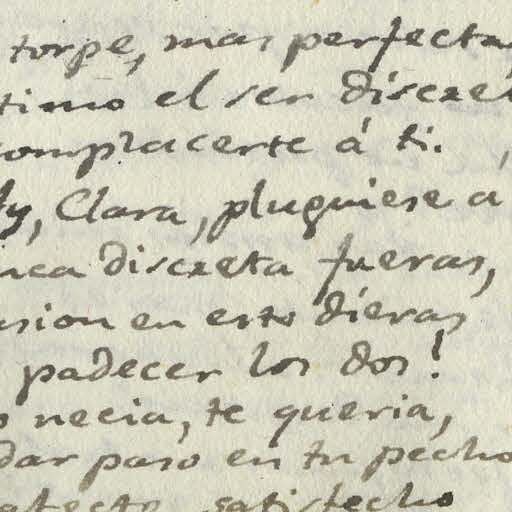 torpe, mas perfecta
timo el ser discre
complacerte á ti.
Ay, Clara, pluguiese a
nca discreta fueras,
asion en esto dieras
padecer los dos!
necia, te queria,
dar paso en tu pecho
afecto satisfecho